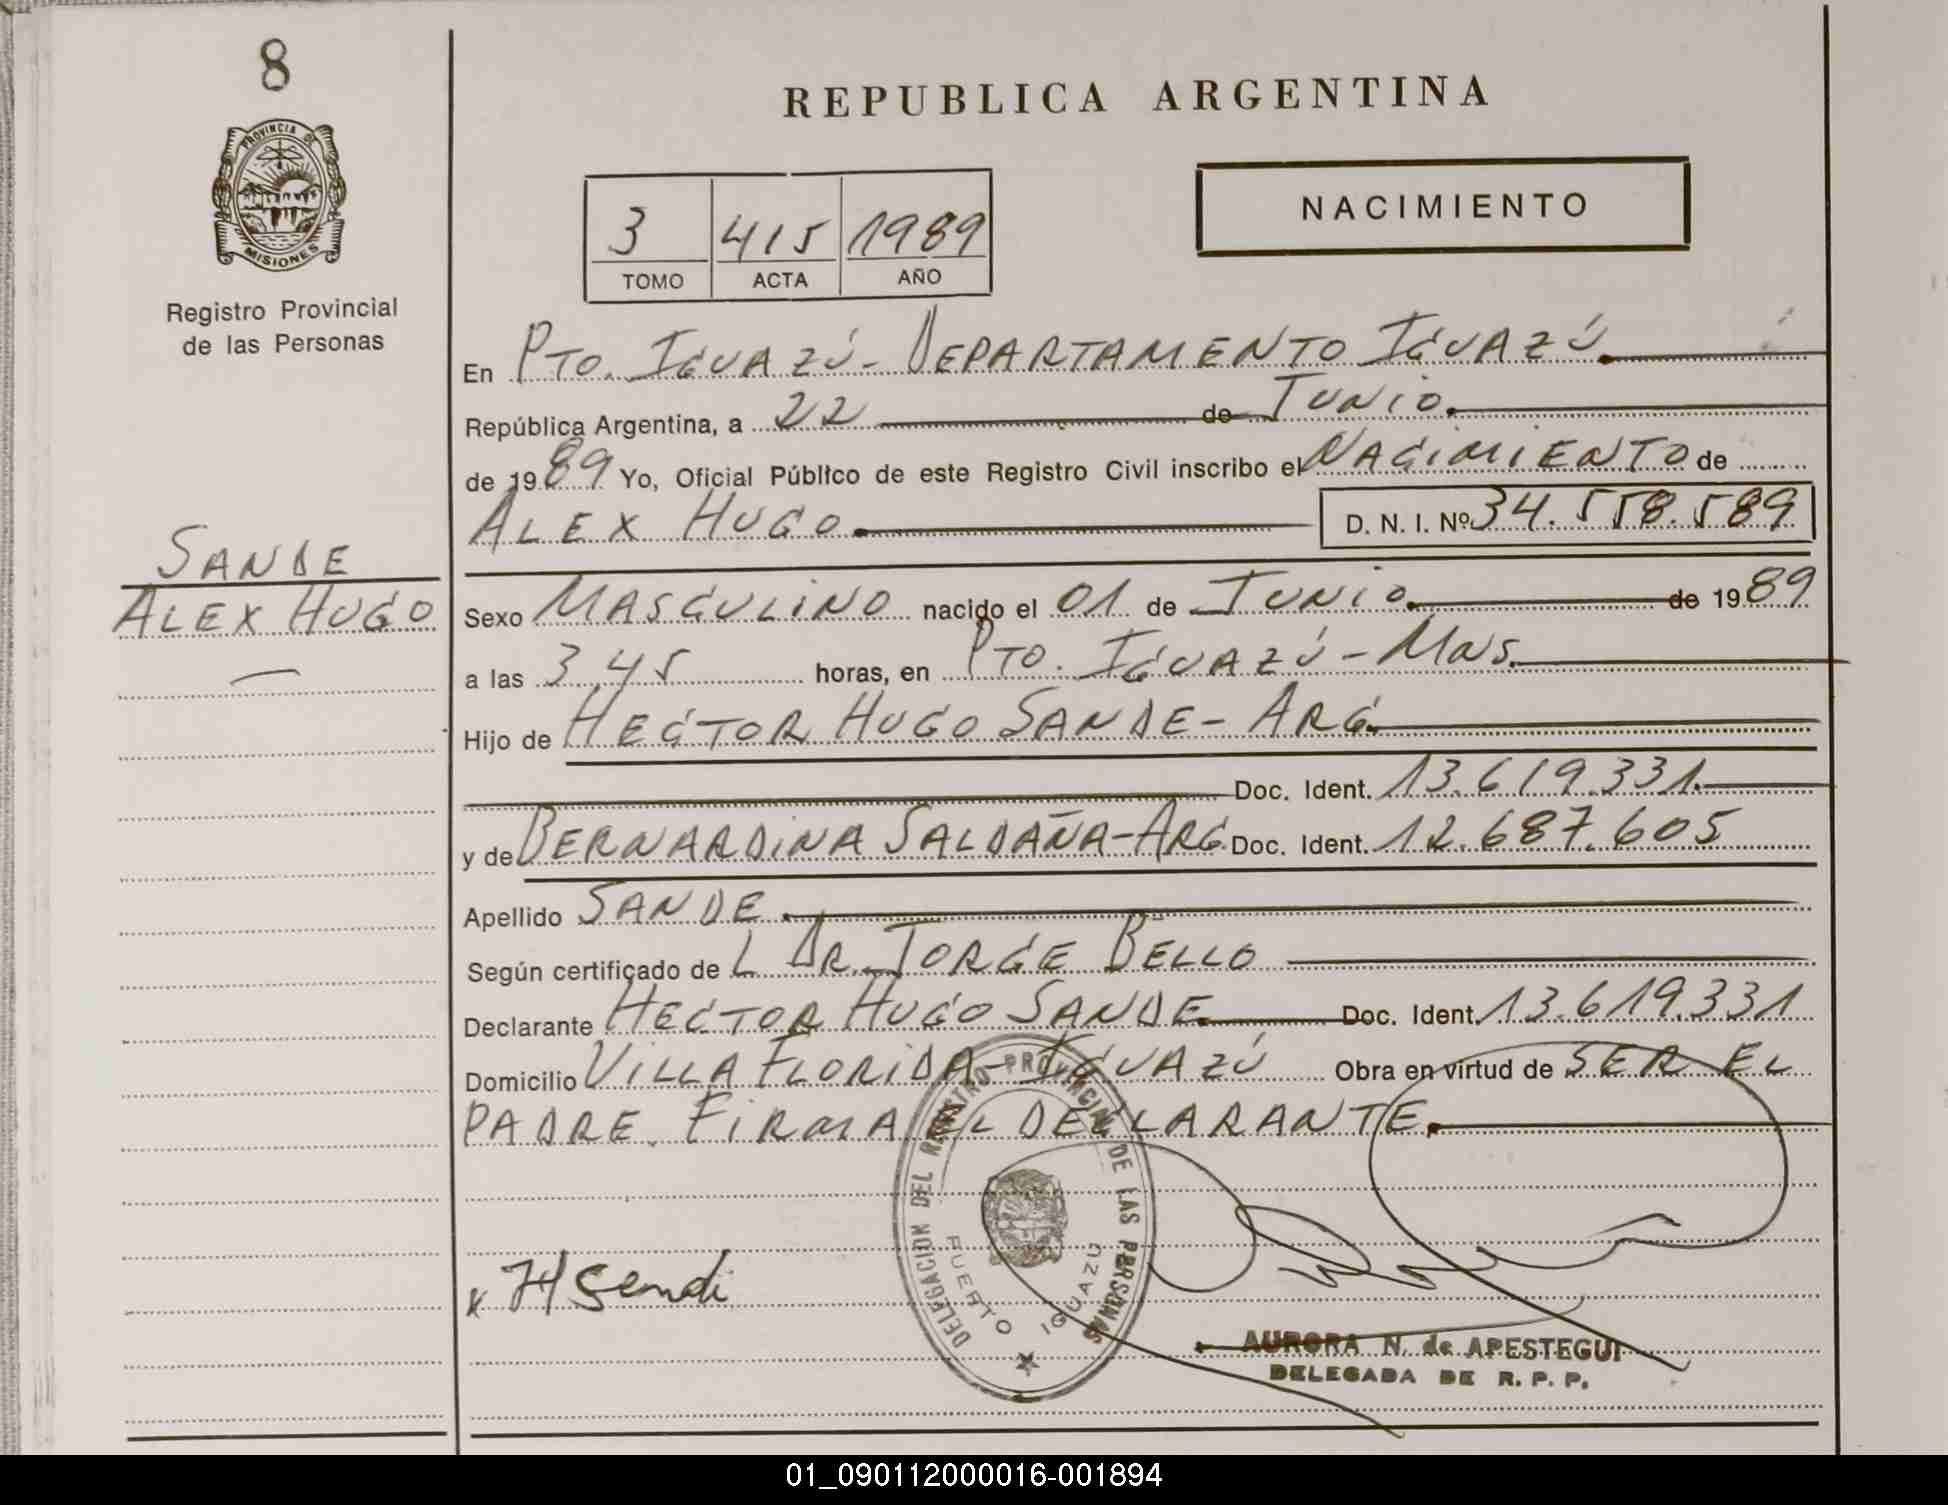 8
PROVINCIA DE
MISIONES
Registro Provincial
de las Personas
SANDE
ALEX HUGO
REPUBLICA ARGENTINA
3 415 1989
TOMO ACTA AÑO
NACIMIENTO
En PTO. IGUAZÚ - DEPARTAMENTO IGUAZÚ.
República Argentina, a 22 de JUNIO.
de 1989 Yo, Oficial Público de este Registro Civil inscribo el NACIMIENTO de
ALEX HUGO. D. N. I. Nº 34.558.589
Sexo MASCULINO nacido el 01 de JUNIO. de 1989
a las 3,45 horas, en PTO. IGUAZÚ - Mns.
Hijo de HECTOR HUGO SANDE - ARG.
Doc. Ident. 13.619.331.
y de BERNARDINA SALDAÑA - ARG. Doc. Ident. 12.687.605
Apellido SANDE.
Según certificado de L DR. JORGE BELLO
Declarante HECTOR HUGO SANDE. Doc. Ident. 13.619.331
Domicilio VILLA FLORIDA - IGUAZÚ Obra en virtud de SER EL
PADRE. FIRMA EL DECLARANTE.
DELEGACION DEL REGISTRO PROVINCIAL DE LAS PERSONAS
PUERTO IGUAZU
x H Sendi
AURORA N. de APESTEGUI
DELEGADA DE R. P. P.
01_090112000016-001894